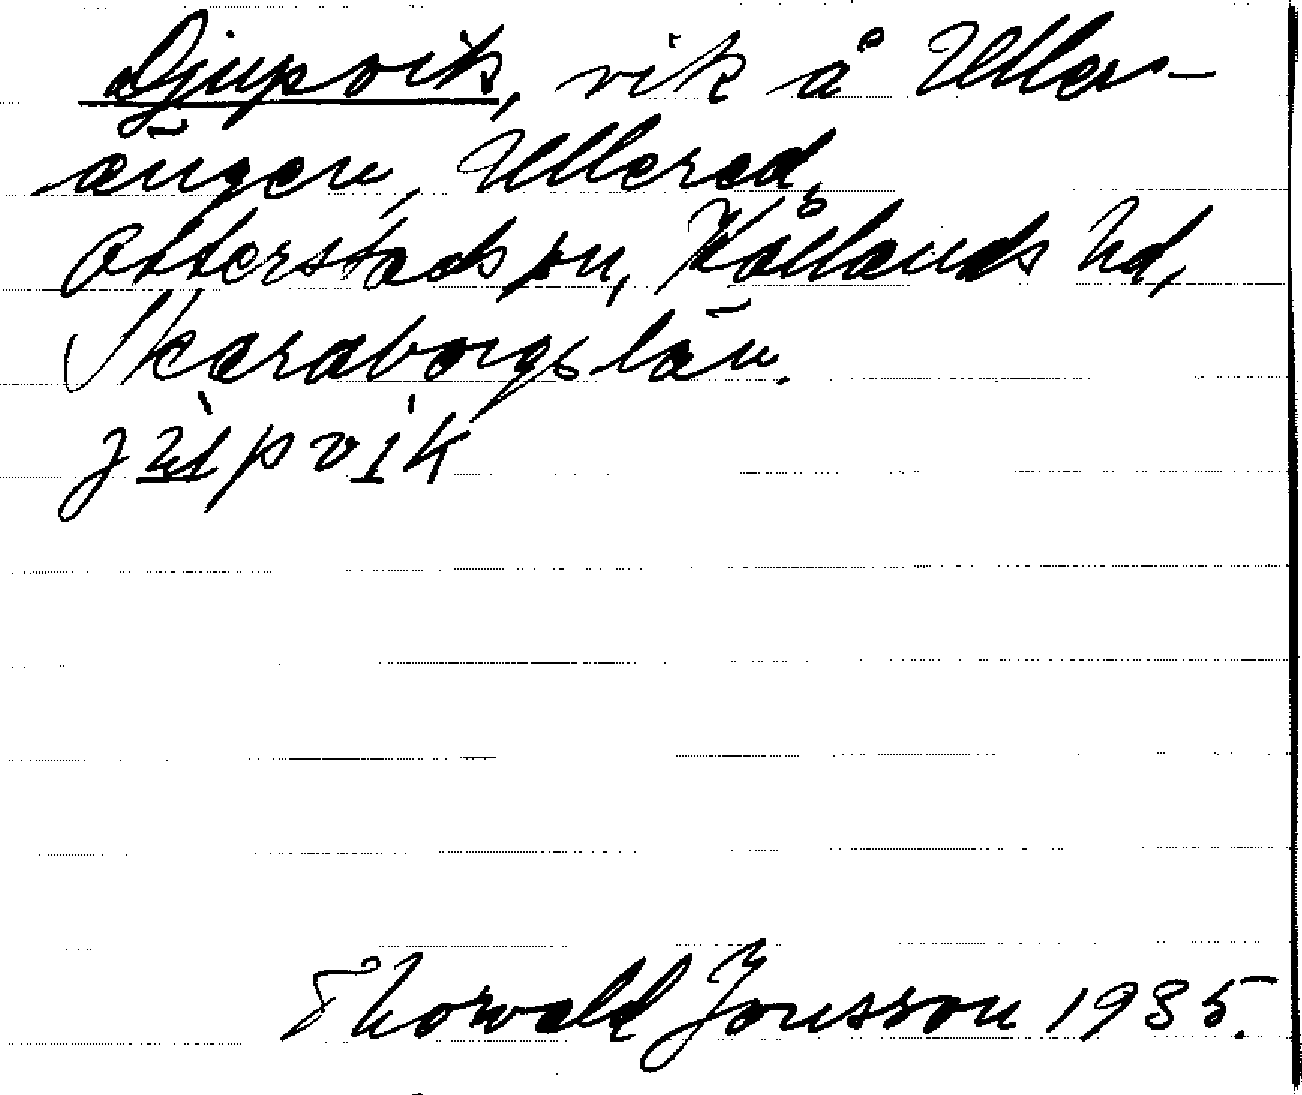 Djupvik, vik å Uller-
ängen, Ullered,
Otterstads sn, Kållands hd,
Skaraborgs län.
Thorwald Jonsson 1935.